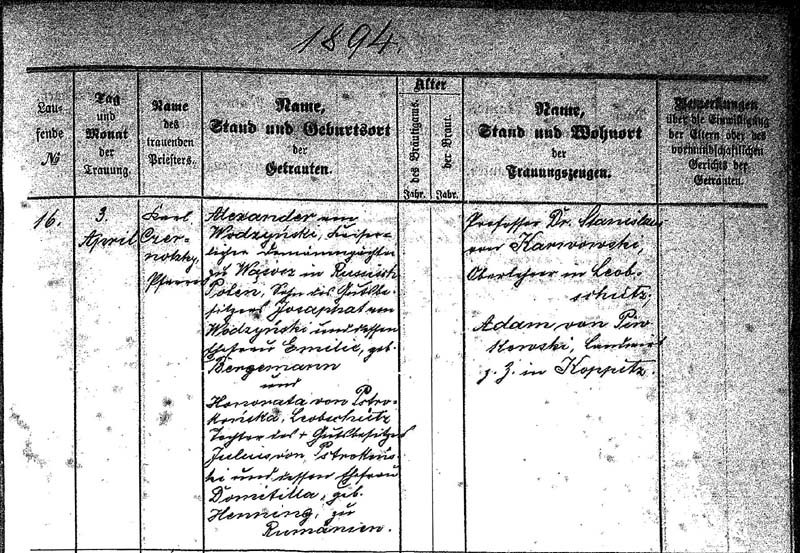 1894.
Lau-
fende
No
Tag
und
Monat
der
Trauung.
Name
des
trauenden
Priesters.
Name,
Stand und Geburtsort
der
Getrauten.
Alter
des Bräutigams.
der Braut.
Jahr.
Jahr.
Name,
Stand und Wohnort
der
Trauungszeugen.
Bemerkungen
über die Einwilligung
der Eltern oder des
vormundschaftlichen
Gerichts der
Getrauten.
16.
3.
April
Karl
Czer-
notzky
Pfarrer
Alexander von
Wodzyński, Kaiser-
licher
zu in Russisch
Polen, Sohn des Gutsbe-
sitzers Josaphat von
Wodzyński und dessen
Ehefrau Emilie, geb.
Bergemann
und
Honorata von Pstro-
końska, Leobschütz
Tochter des + Gutsbesitzers
Julius von Pstrokońs-
ki und dessen Ehefrau
Domitilla, geb.
Henning, zu
Rumänien.
Professor Dr. Stanislaus
von Karwowski,
Oberlehrer in Leob-
schütz,
Adam von Piw
kowski, Landwirt
z. Z. in Koppitz.